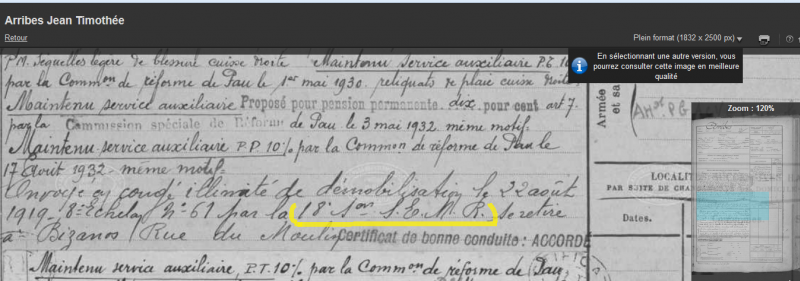 Arribes Jean Timothée
Retour
Plein format (1832 x 2500 px)
En sélectionnant une autre version, vous
pourrez consulter cette image en meilleure
qualité
Zoom : 120%
P.M. Séquelles légère de blessure cuisse droite Maintenu service auxiliaire P.T. 10
par la Common de réforme de Pau le 1er mai 1930. reliquats de plaie cuisse droite
Maintenu service auxiliaire Proposé pour pension permanente. dix. pour cent art 7.
par la Commission spéciale de Réforme de Pau le 3 mai 1932 même motif.
Maintenu service auxiliaire P.P. 10% par la Common de réforme de Pau le
17 avril 1932 - même motif.
Envoyé en congé illimité de démobilisation le 22 août
1919 - 8e Echelon No 61 par la 18e Son S.E.M.R. se retire
à Bizanos, Rue du Moulin Certificat de bonne conduite : ACCORDÉ
Maintenu service auxiliaire, P.T. 10% par la Common de réforme de Pau
Armée
et sa
LOCALI
PAR SUITE DE CHA
Dates.